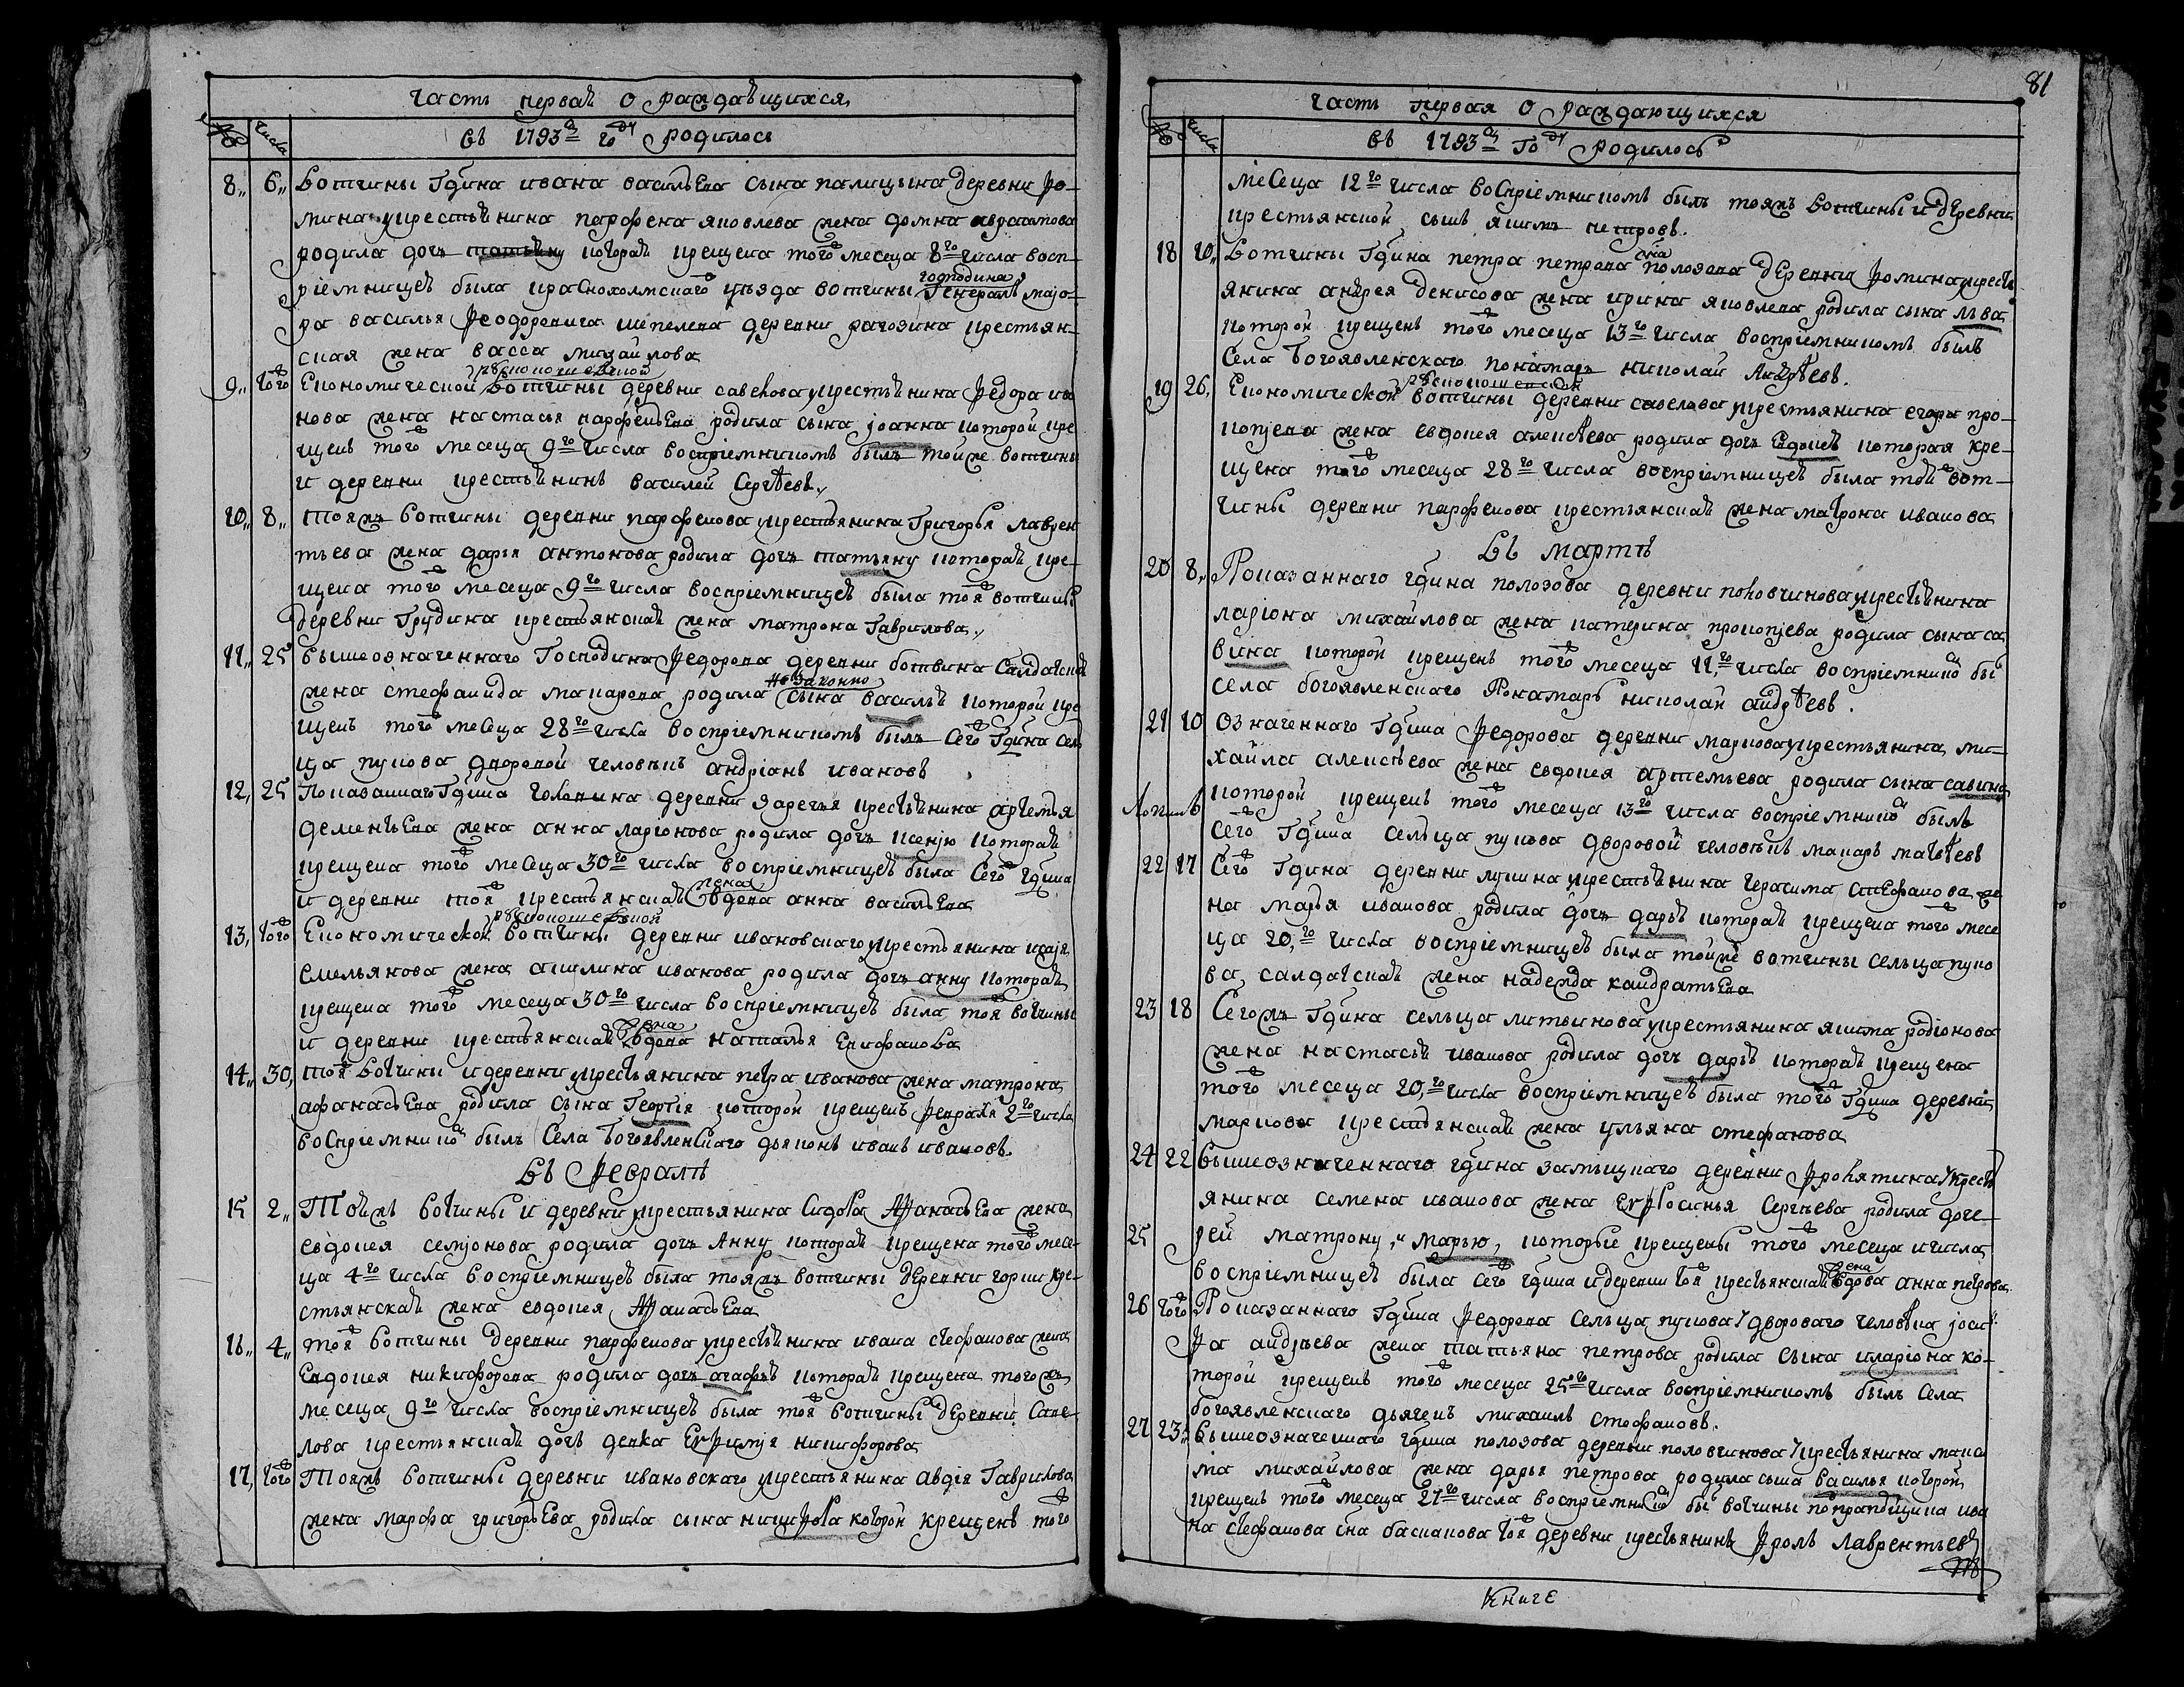 часть первая о раждающихся
№ числа
въ 1793м году родилося
8 6 Вотчины Гдина ивана васильева сына палицына деревни фо-
мина крестьянина парфена яковлева жена домна авраамова
родила дочь татьяну которая крещена того месеца 8го числа восп-
господина
ріемницею была краснохолмскаго уъзда вотчины Генералъ маіо-
ра василья феодоровича шепелева деревни рагозина крестьян-
ская жена васса михайлова
9 того Економической вотчины деревни савелова крестьянина федора ива
нова жена настасья парфеньева родила сына іоанна которой кре
щенъ того месеца 9го числа воспріемникомъ былъ тойже вотчины
и деревни крестьянинъ василей Сергѣевъ
10 8 тояжъ вотчины деревни парфенова крестьянина Григорья лаврен
тьева жена дарья антонова родила дочь татьяну которая кре-
щена того месеца 9го числа воспріемницею была тоя вотчины
деревни Грудина крестьянская жена матрона Гаврилова
11 25 вышеозначеннаго Господина федорова деревни ботвина Салдатская
незаконно
жена стефанида макарова родила сына василья которой кре
щенъ того месеца 28го числа воспріемникомъ былъ Сего Гдина сель
ца пукова дворовой человѣкъ андріанъ ивановъ
12 25 Показаннаго Гдина Головина деревни заречья крестьянина артемья
дементьева жена анна ларіонова родила дочь ксенію которая
крещена того месеца 30го числа воспріемницею была Сего Гдина
жена
и деревни тоя крестьянская вдова анна васильева
13 того Економической вотчины деревни ивановскаго крестьянина исаія
емельянова жена акилина иванова родила дочь анну которая
крещена того месеца 30го числа воспріемницею была тоя вотчины
жена
и деревни крестьянская вдова наталья Епифанова
14 30 тоя вотчины и деревни крестьянина петра иванова жена матрона
афанасьева родила сына Георгія которой крещенъ февраля 2го числа
воспріемникомъ былъ Села Богоявленскаго дьяконъ иванъ ивановъ.
Въ февралѣ
15 2 Тойжъ вотчины и деревни крестьянина Сидора Афанасьева жена
евдокея семіонова родила дочь Анну которая крещена того месе-
ца 4го числа воспріемницею была тояжъ вотчины деревни горки кре-
стьянская жена евдокея Афанасьева
16 4 тоя вотчины деревни парфенова крестьянина ивана стефанова жена
Евдокея никифорова родила дочь агафью которая крещена тогожъ
месеца 9го числа воспріемницею была тоя вотчины деревни Саве-
лова крестьянская дочь девка Евфимія никифорова
17 того Тояжъ вотчины деревни ивановскаго крестьянина авдія Гаврилова
жена марфа григорьева родила сына никифора которой крещенъ того
81
часть первая о раждающихся
№ числа
въ 1793м году родилось
месеца 12го числа воспріемникомъ былъ тояжъ вотчины и деревни
крестьянской сынъ якимъ петровъ.
сына
18 10 Вотчины Гдина петра петрова полозова деревни фомина крестья
янина андрея денисова жена ирина яковлева родила сына льва
которой крещенъ того месеца 13го числа воспріемникомъ былъ
Села Богоявленскаго понамарь николай Андрѣевъ.
19 26 Економической вотчины деревни савелова крестьянина егора про-
копіева жена евдокея алексѣева родила дочь Евдокею которая кре-
щена того месеца 28го числа воспріемницею была той вот-
чины деревни парфенова крестьянская жена матрона иванова
Въ мартѣ
20 8 Показаннаго гдина полозова деревни половчинова крестьянина
ларіона михайлова жена катерина прокопіева родила сына са
вина которой крещенъ того месеца 11го числа воспріемникомъ бы
села богоявленскаго Понамарь николай андрѣевъ.
21 10 Означеннаго Гдина федорова деревни маркова крестьянина ми-
хайла алексѣева жена евдокея артемьева родила сына савина
которой крещенъ того месеца 13го числа воспріемникомъ былъ
сего Гдина сельца пукова дворовой человѣкъ макаръ матвѣевъ
22 17 Сего Гдина деревни лукина крестьянина Герасима стефанова же
на марья иванова родила дочь дарью которая крещена того месе
ца 20го числа воспріемницею была тойже вотчины сельца пуко
ва салдатская жена надежда кандратьева
23 18 Сегожъ Гдина сельца литвинова крестьянина якима родіонова
жена настасья иванова родила дочь дарью которая крещена
того месеца 20го числа воспріемницею была того Гдина деревни
маркова крестьянская жена ульяна стефанова
24 22 вышеозначеннаго гдина замыцкаго деревни фролятина крест
янина семена иванова жена Евфросинья Сергѣева родила доче-
25 рей матрону, и марью, которые крещены того месеца и числа
жена
воспріемницею была сего гдина и деревни тоя крестьянская вдова анна петрова.
26 того Показаннаго Гдина федорова Сельца пукова дворового человѣка іоси-
фа андрѣева жена татьяна петрова родила сына иларіона ко-
торой крещенъ того месеца 25го числа воспріемникомъ былъ Села
богоявленскаго дьячекъ михаилъ стефановъ.
27 23 вышеозначеннаго гдина полозова деревни половчинова крестьянина макси
ма михайлова жена дарья петрова родила сына василья которой
крещенъ того месеца 27го числа воспріемникомъ бы вотчины попрапщика ива
на стефанова сна баскакова тоя деревни крестьянинъ фролъ лаврентьевъ
Книге